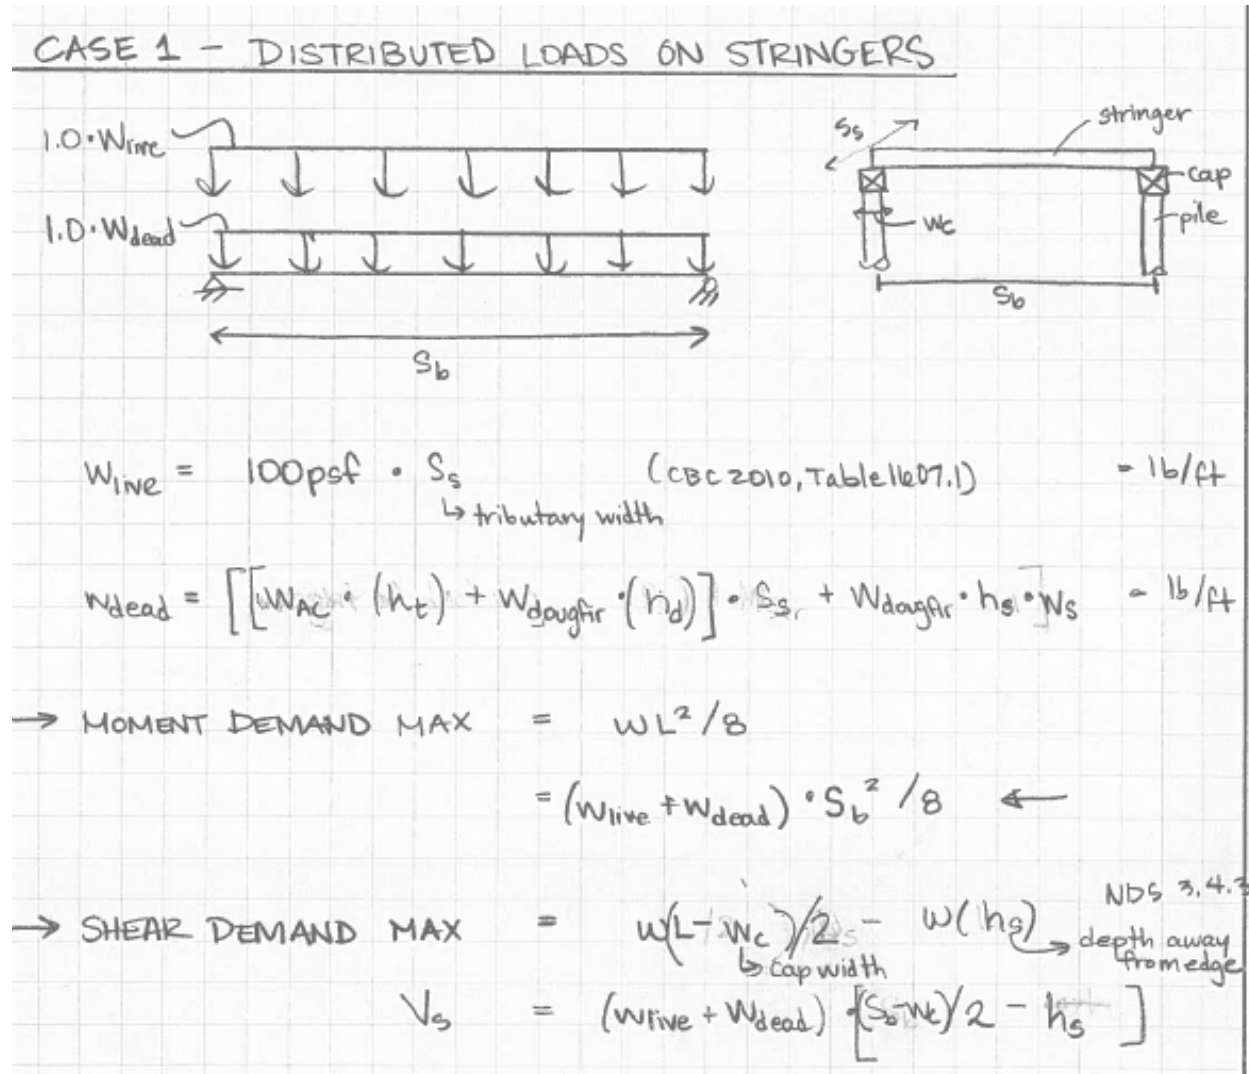 CASE 1 - DISTRIBUTED LOADS ON STRINGERS
1.0·Wlive
1.0·Wdead
Sb
Ss
stringer
cap
pile
Wc
Sb
Wlive = 100psf · Ss (CBC 2010, Table 1607.1) = lb/ft
↳ tributary width
Wdead = [[WAC · (ht) + Wdougfir · (hd)] · Ss + Wdougfir · hs · Ws = lb/ft
→ MOMENT DEMAND MAX = WL²/8
= (Wlive + Wdead) · Sb² /8 ←
NDS 3.4.3
→ SHEAR DEMAND MAX = W(L - Wc)/2 - W(hs) → depth away
from edge
↳ cap width
Vs = (Wlive + Wdead) · [(Sb-Wc)/2 - hs]